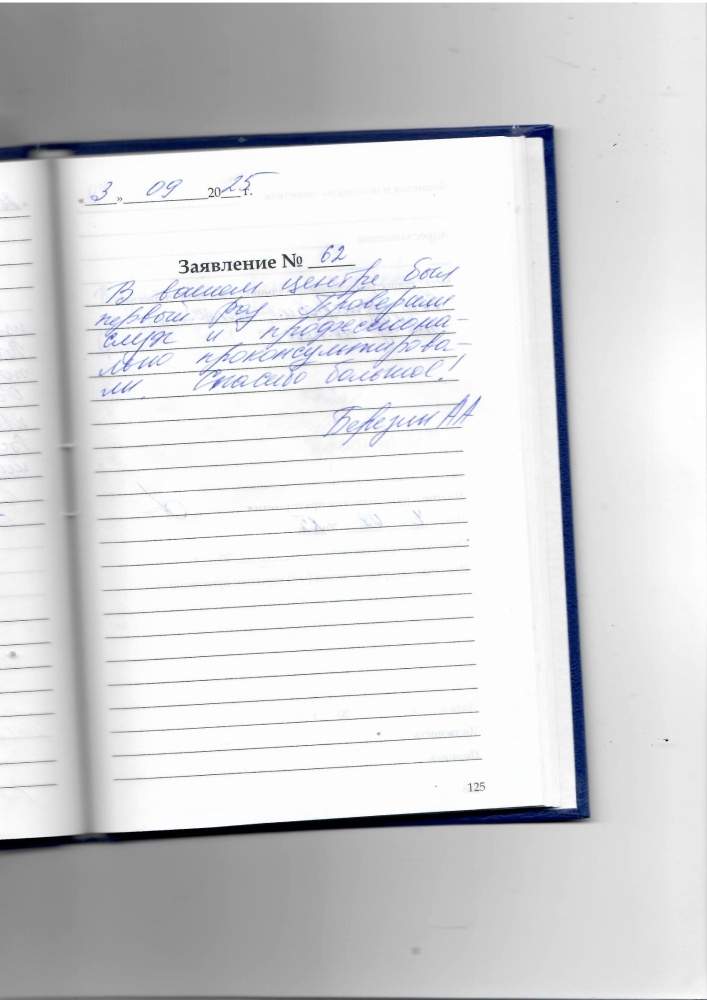 «3» 09 2025 г.
Заявление № 62
В вашем центре был
первый раз. Проверили
слух и профессиона-
льно проконсультирова-
ли. Спасибо большое!
Березин АА
125